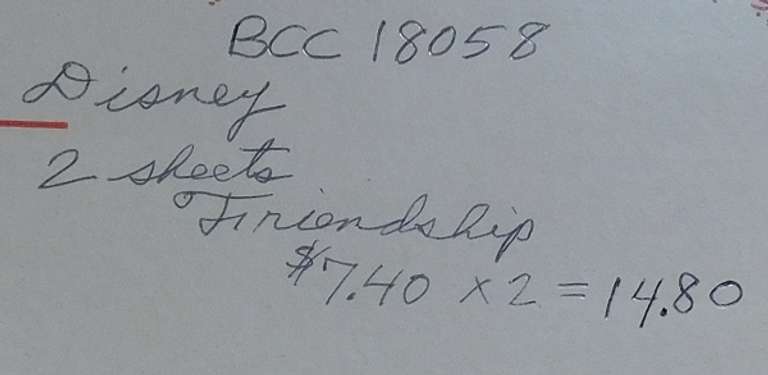 BCC 18058
Disney
2 sheets
Friendship
$7.40 x 2 = 14.80